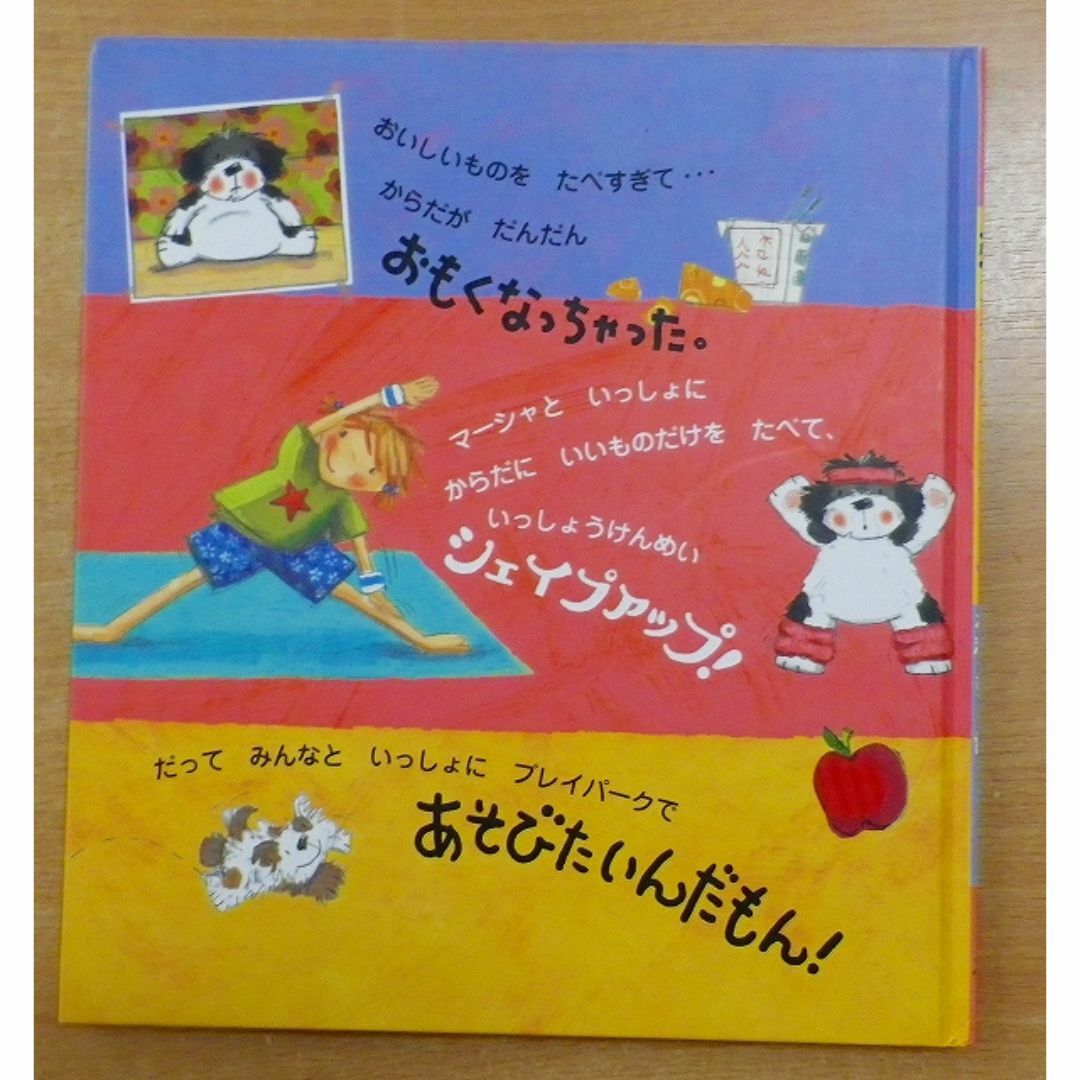 おいしいものを　たべすぎて・・・
からだが　だんだん
おもくなっちゃった。
マーシャと　いっしょに
からだに　いいものだけを　たべて、
いっしょうけんめい
シェイプアップ！
だって　みんなと　いっしょに　プレイパークで
あそびたいんだもん！